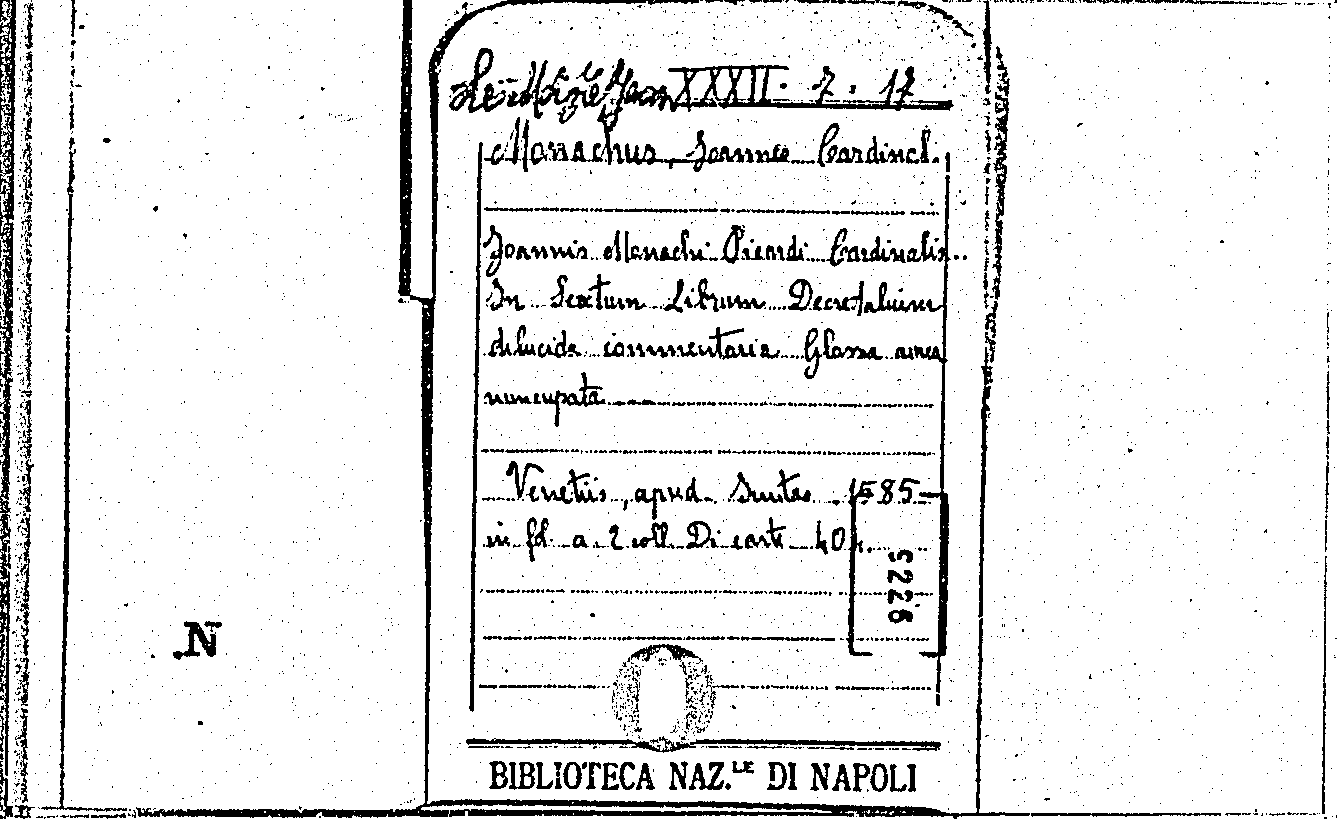 Le Moine Jean XXXII. 7. 17
Monachus, Joannes Cardinal.
Joannis Monachi Picardi Cardinalis..
In Sextum Librum Decretalium
dilucida commentaria Glossa aurea
nuncupata
Venetiis, apud Juntas 1585
in fol. a 2 coll. Di carte 404.
5226
N
BIBLIOTECA NAZ.LE DI NAPOLI